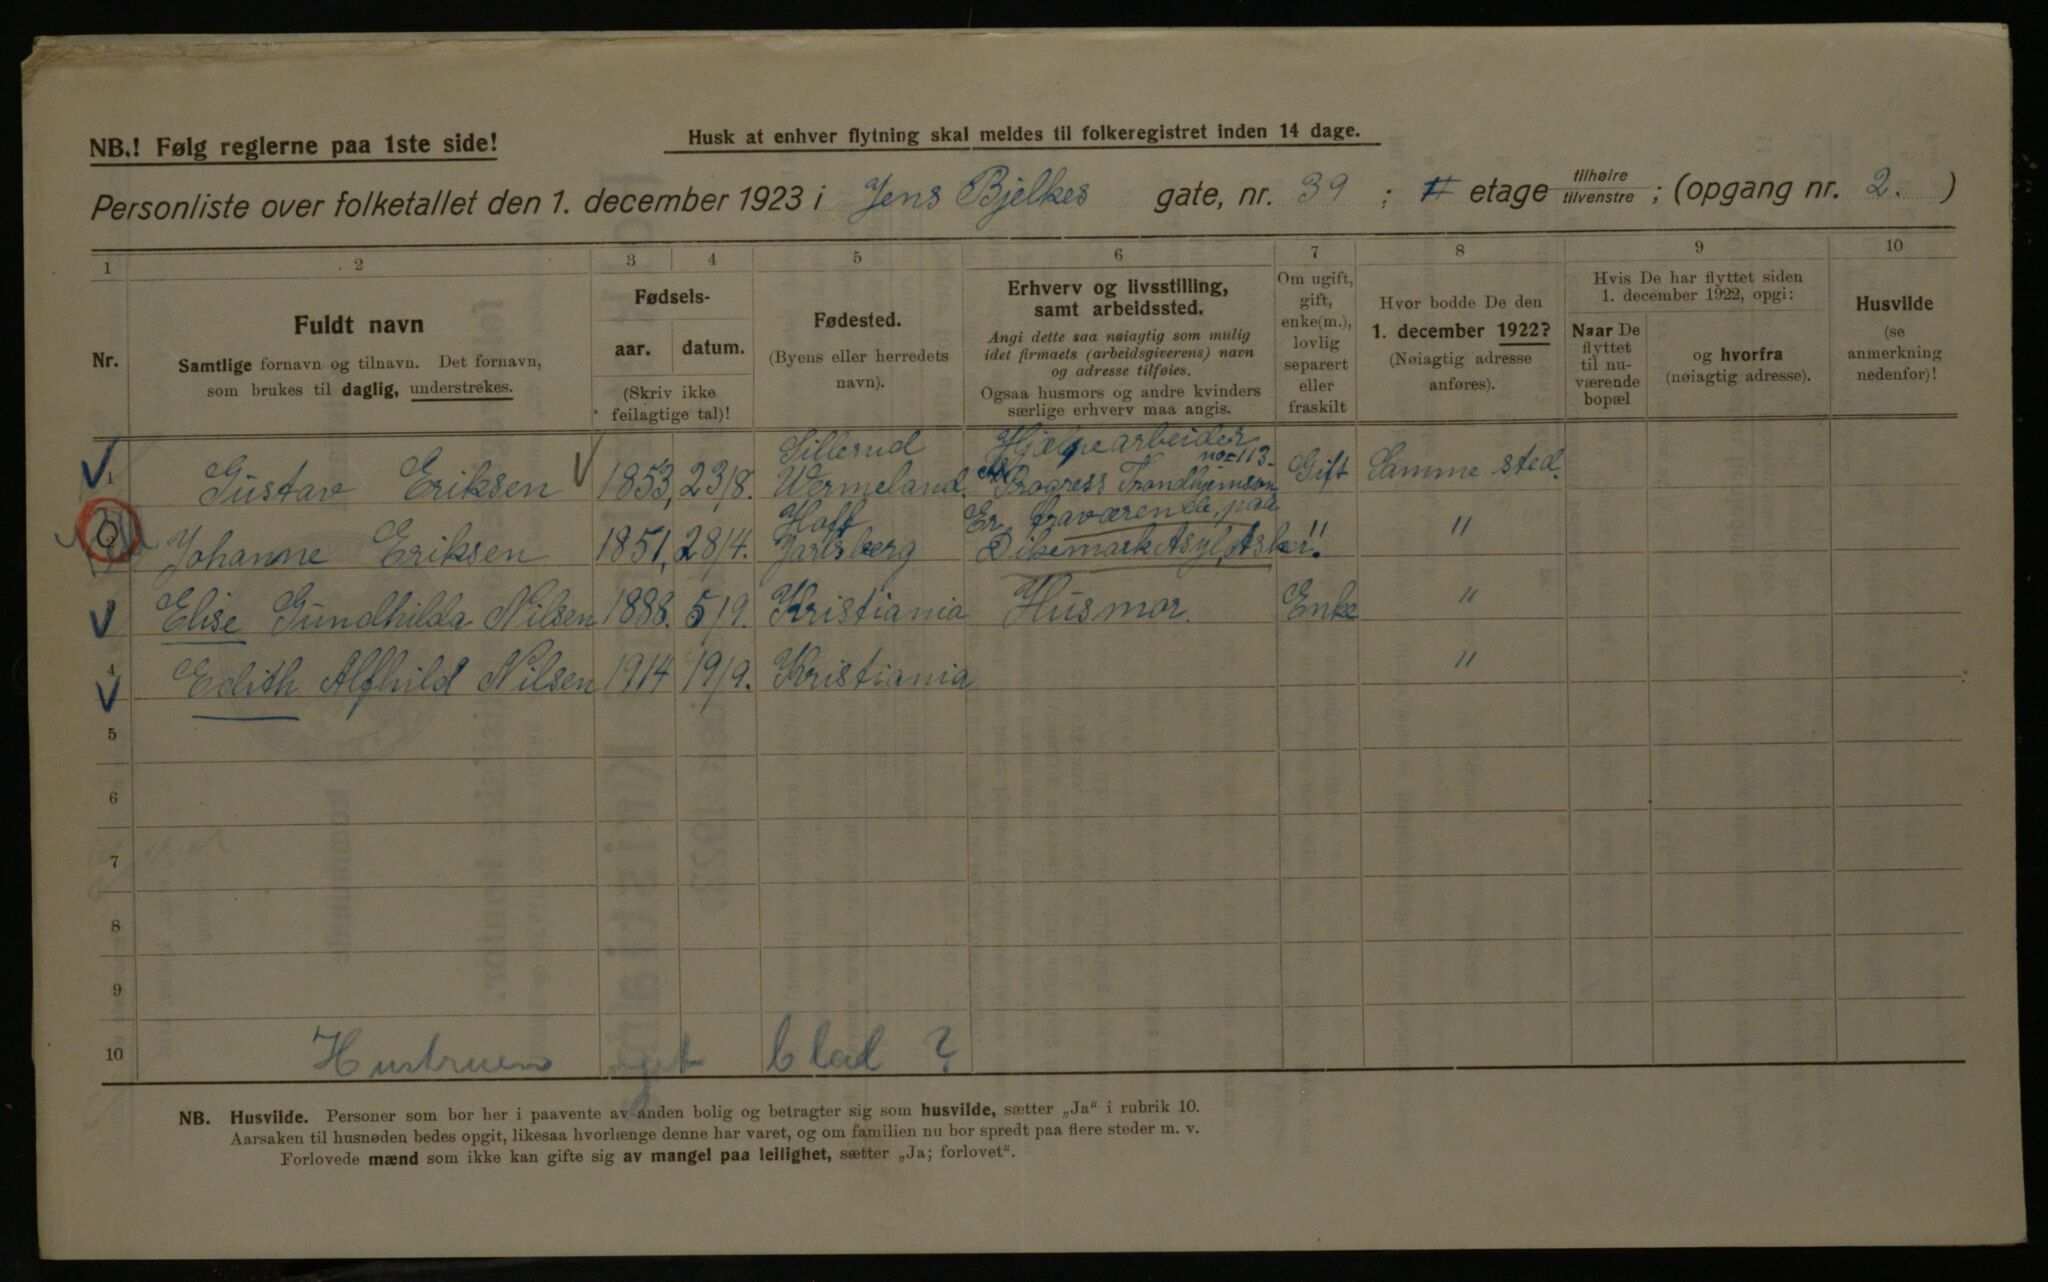 NB.! Følg reglerne paa 1ste side!
Husk at enhver flytning skal meldes til folkeregistret inden 14 dage.
Personliste over folketallet den 1. december 1923 i Jens Bjelkes gate, nr. 39 ; # etage tilhøire tilvenstre ; (opgang nr. 2. )
1 2 3 4 5 6 7 8 9 10
Nr.
Fuldt navn
Samtlige fornavn og tilnavn. Det fornavn,
som brukes til daglig, understrekes.
Fødsels-
aar. datum.
(Skriv ikke
feilagtige tal)!
Fødested.
(Byens eller herredets
navn).
Erhverv og livsstilling,
samt arbeidssted.
Angi dette saa nøiagtig som mulig
idet firmaets (arbeidsgiverens) navn
og adresse tilføies.
Ogsaa husmors og andre kvinders
særlige erhverv maa angis.
Om ugift,
gift,
enke(m.),
lovlig
separert
eller
fraskilt
Hvor bodde De den
1. december 1922?
(Nøiagtig adresse
anføres).
Hvis De har flyttet siden
1. december 1922, opgi:
Naar De
flyttet
til nu-
værende
bopæl
og hvorfra
(nøiagtig adresse).
Husvilde
(se
anmerkning
nedenfor)!
Sillerud Hjælpearbeider
no=113.
1 Gustav Eriksen 1853, 23/8. Wermeland. Progress Trondhjemsvn Gift Samme sted.
Hoff Er fraværende, paa
Johanne Eriksen 1851, 28/4. Jarlsberg Dikemark Asyl, Asker. " "
Elise Gundhilda Nilsen 1888. 5/9. Kristiania Husmor. Enke "
4 Edith Alfhild Nilsen 1914 19/9. Kristiania "
5
6
7
8
9
10 Hustruen eget blad ?
NB. Husvilde. Personer som bor her i paavente av anden bolig og betragter sig som husvilde, sætter „Ja“ i rubrik 10.
Aarsaken til husnøden bedes opgit, likesaa hvorlænge denne har varet, og om familien nu bor spredt paa flere steder m. v.
Forlovede mænd som ikke kan gifte sig av mangel paa leilighet, sætter „Ja; forlovet“.